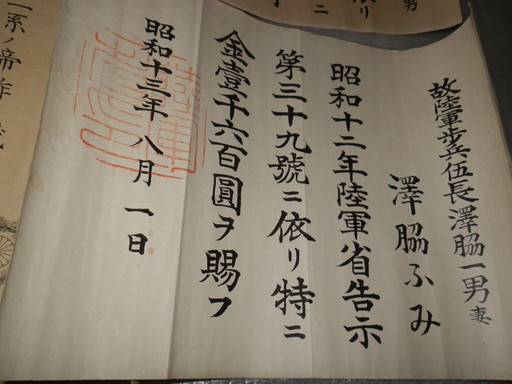 故陸軍歩兵伍長澤脇一男妻
澤脇ふみ
昭和十二年陸軍省告示
第三十九號ニ依リ特ニ
金壹千六百圓ヲ賜フ
昭和十三年八月一日